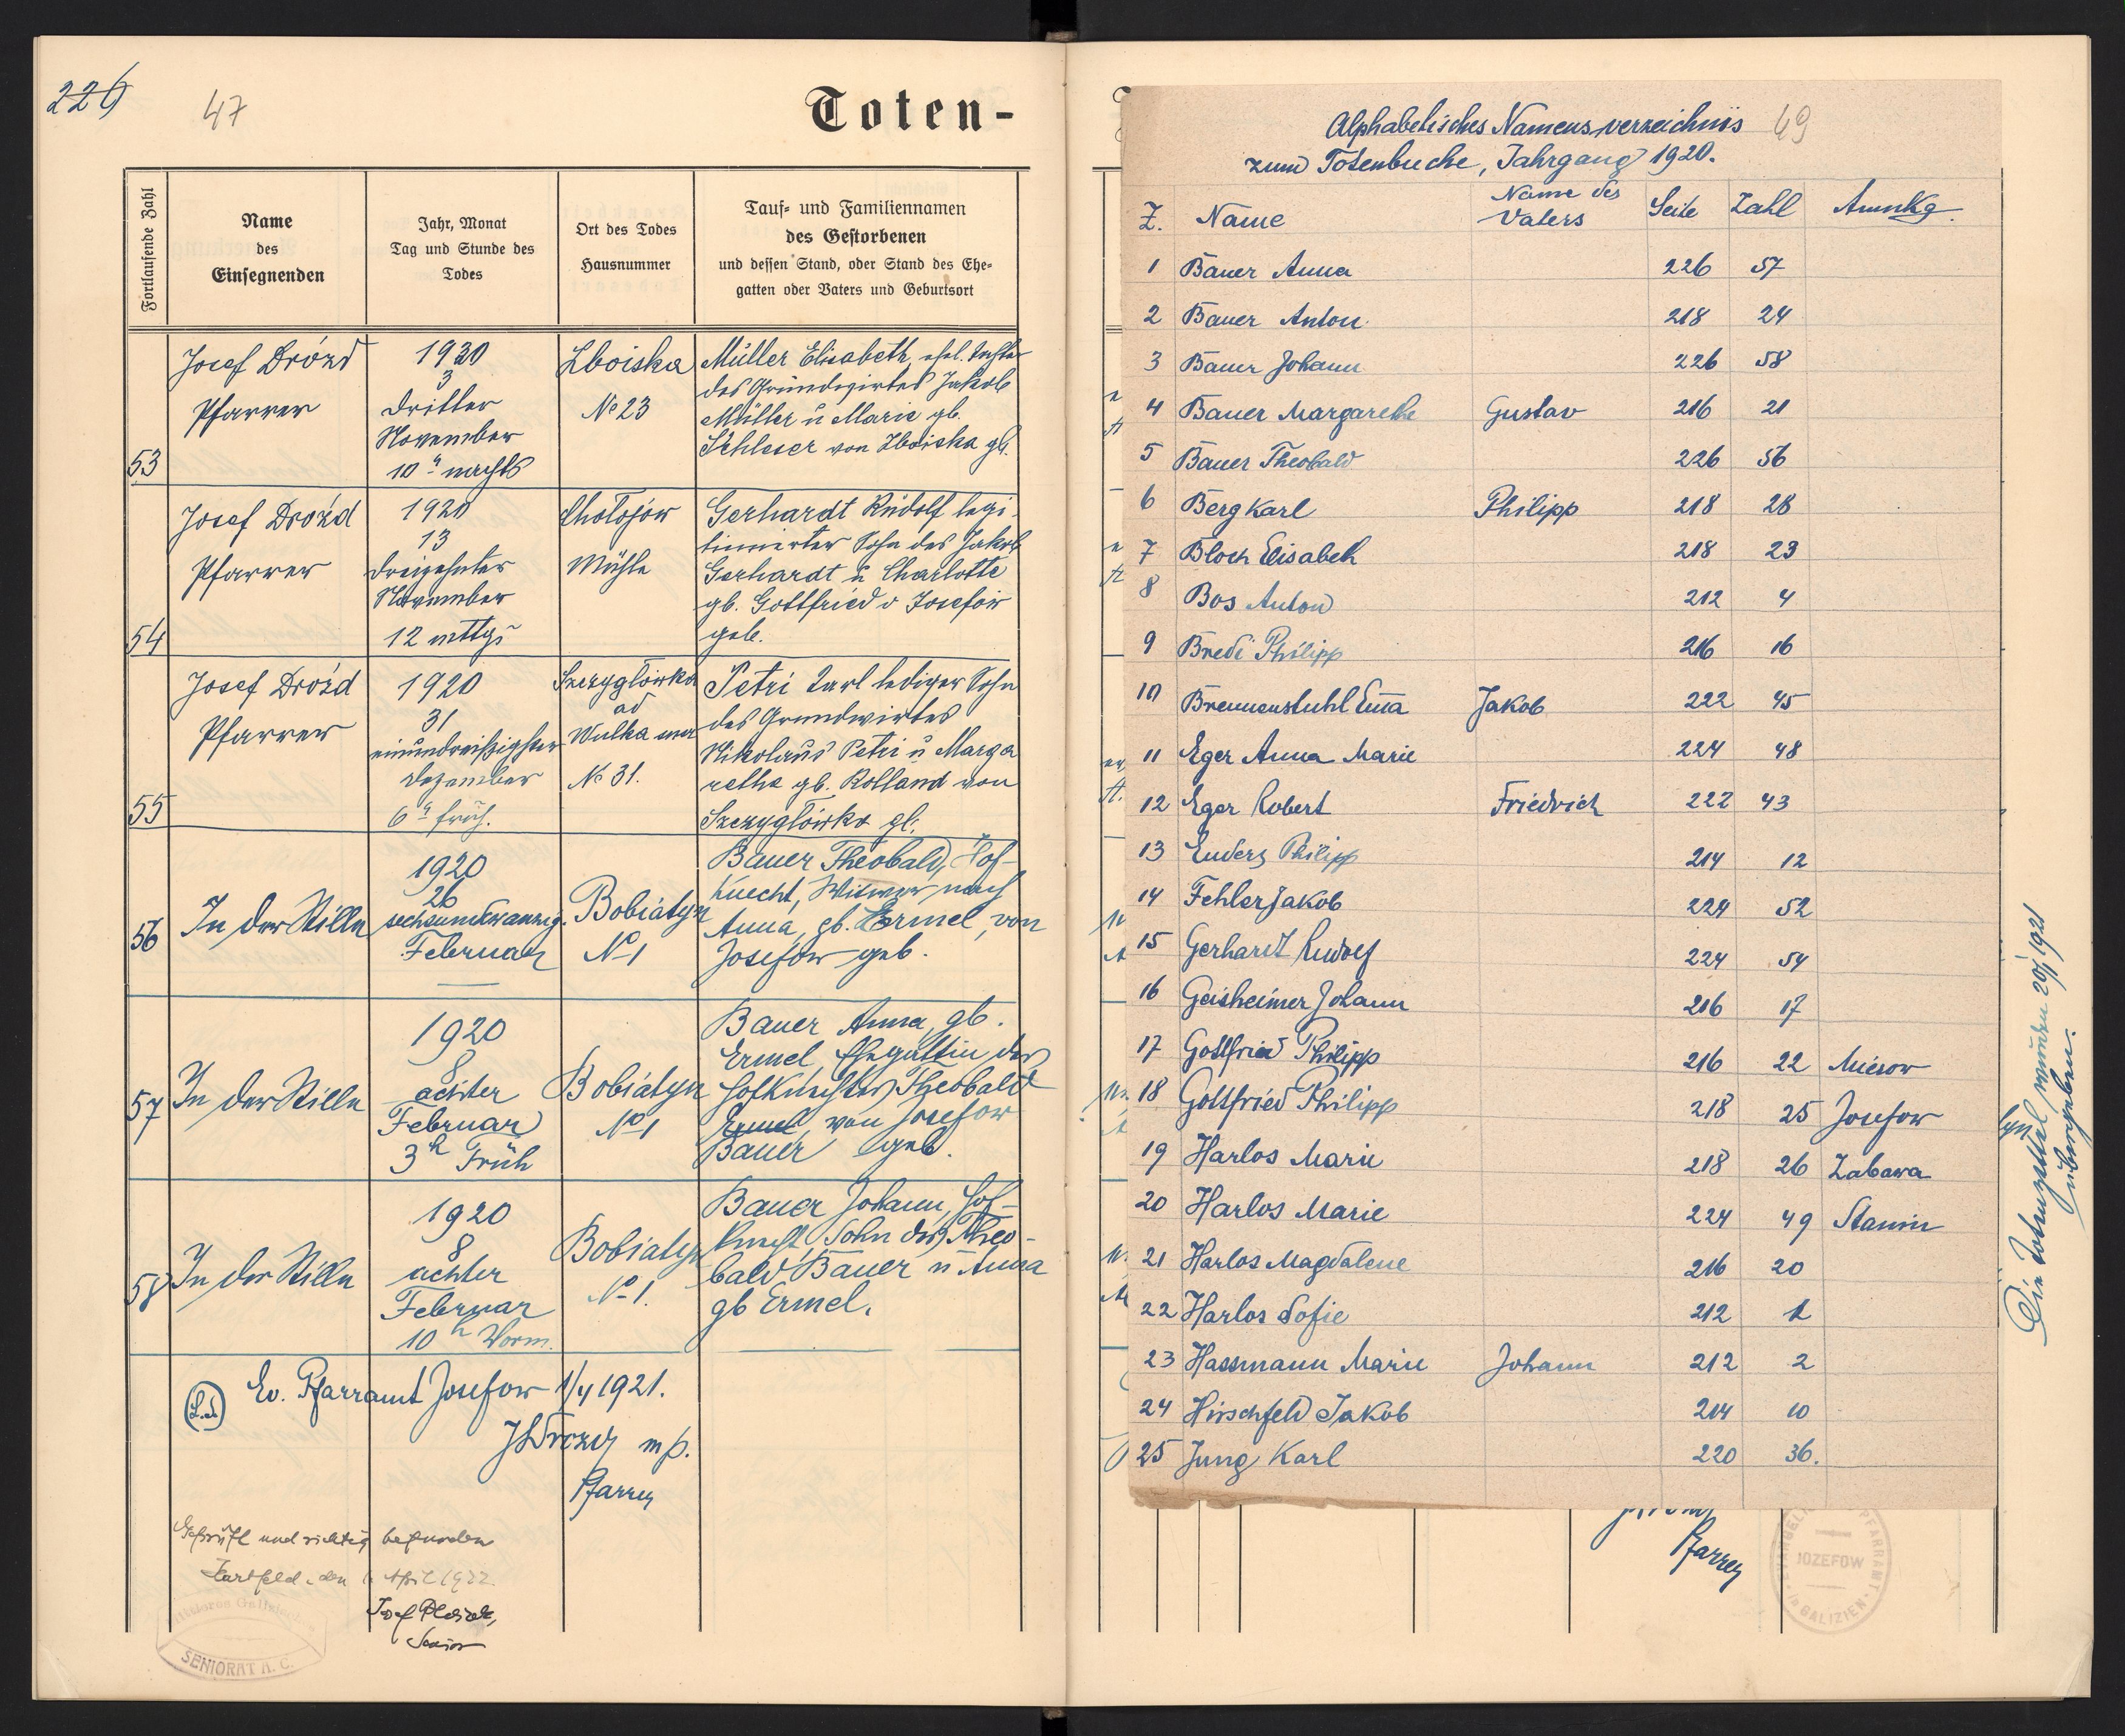 226
47
Toten-
Fortlaufende Zahl
Name
des
Einsegnenden
Jahr, Monat
Tag und Stunde des
Todes
Ort des Todes
Hausnummer
Tauf- und Familiennamen
des Gestorbenen
und dessen Stand, oder Stand des Ehe-
gatten oder Vaters und Geburtsort
53
Josef Drózd
Pfarrer
1920
3
dritter
November
10 h nachts
Zboiska
No 23
Müller Elisabeth, ehel. Tochter
des Grundwirtes Jakob
Müller u Marie gb.
Schleser von Zboiska gb.
54
Josef Drozd
Pfarrer
1920
13
dreizehnter
November
12 mttgs
Chołojów
Mühle
Gerhardt Rudolf legi-
timierter Sohn des Jakob
Gerhardt u Charlotte
gb. Gottfried v Josefów
geb.
55
Josef Drozd
Pfarrer
1920
31
einunddreißigster
Dezember
6 h früh.
Szczygłówka
ad
Wulka
No 31.
Petri Karl lediger Sohn
des Grundwirtes
Nikolaus Petri u Marga
retha gb. Rolland von
Szczygłówka gb.
56
In der Stille
1920
26
sechsundzwanzig.
Februar
Bobiatyn
No 1
Bauer Theobald, Hof-
knecht, Witwer nach
Anna, gb. Ermel, von
Josefow geb.
57
In der Stille
1920
8
achter
Februar
3 h Früh
Bobiatyn
No 1
Bauer Anna, gb.
Ermel Ehegattin des
Hofknechtes Theobald
Ermel, von Josefow
Bauer geb.
58
In der Stille
1920
8
achter
Februar
10 h Vorm.
Bobiatyn
No 1.
Bauer Johann, Hof-
knecht, Sohn des Theo-
bald Bauer u Anna
gb Ermel.
L.S. Ev. Pfarramt Josefow 1/4 1921.
JDrozd mp.
Pfarrer
Geprüft und richtig befunden
Hartfeld, den April 1922
Josef
Senior
SENIORAT A. C.
Alphabetisches Namensverzeichnis 49
zum Totenbuche, Jahrgang 1920.
Z. Name Name des Vaters Seite Zahl Anmkg.
1 Bauer Anna 226 57
2 Bauer Anton 218 24
3 Bauer Johann 226 58
4 Bauer Margarethe Gustav 216 21
5 Bauer Theobald 226 56
6 Berg Karl Philipp 218 28
7 Bloch Elisabeth 218 23
8 Bos Anton 212 4
9 Bredi Philipp 216 16
10 Brennenstuhl Ema Jakob 222 45
11 Eger Anna Marie 224 48
12 Eger Robert Friedrich 222 43
13 Enders Philipp 214 12
14 Fehler Jakob 224 52
15 Gerhardt Rudolf 224 54
16 Geisheimer Johann 216 17
17 Gottfried Philipp 216 22 Mierow
18 Gottfried Philipp 218 25 Josefow
19 Harlos Marie 218 26 Zabawa
20 Harlos Marie 224 49 Stanin
21 Harlos Magdalene 216 20
22 Harlos Sofie 212 1
23 Hassmann Marie Johann 212 2
24 Hirschfeld Jakob 214 10
25 Jung Karl 220 36.
Die Totenzettel wurden 20/1 1921
übergeben.
Pfarrer
PFARRAMT
JOZEFOW
in GALIZIEN